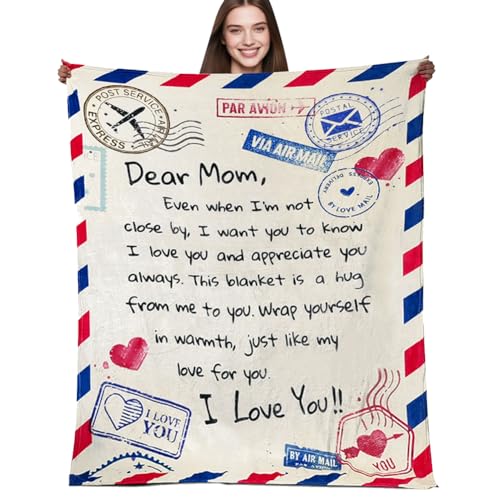 POST SERVICE
EXPRESS
PAR AVION
POSTAL
SERVICE
VIA AIR MAIL
EXPRESS DELIVERY
BY LOVE MAIL
Dear Mom,
Even when I'm not
close by, I want you to know
I love you and appreciate you
always. This blanket is a hug
from me to you. Wrap yourself
in warmth, just like my
love for you.
I Love You!!
I LOVE
YOU
BY AIR MAIL
PAR AVION
YOU